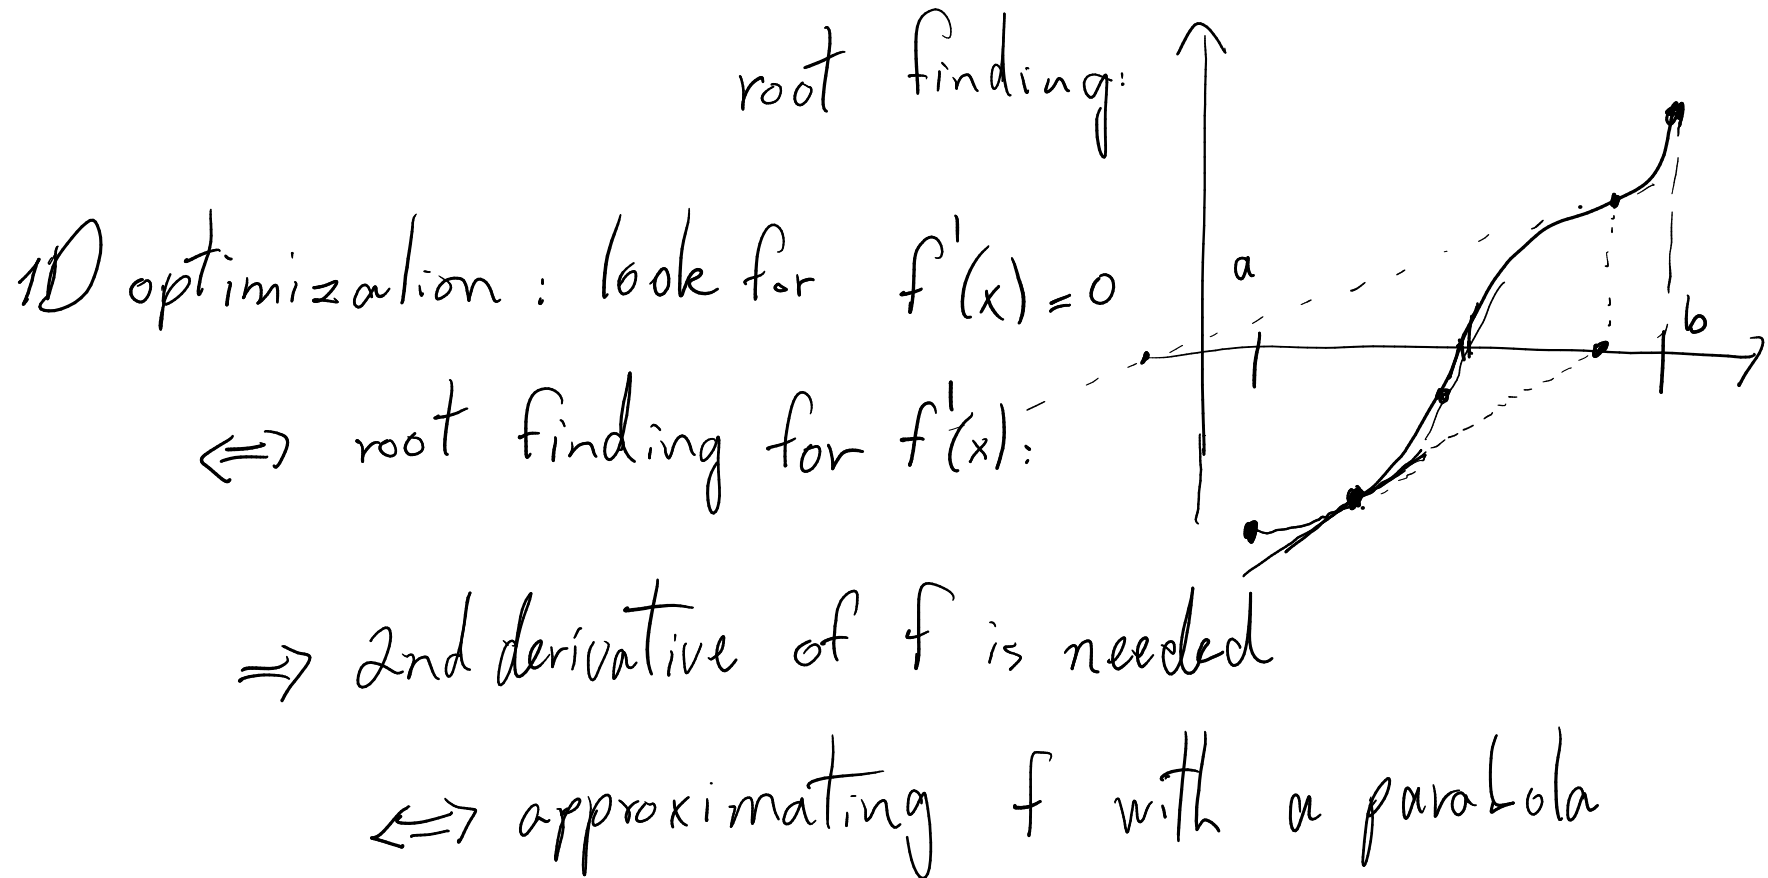 root finding:
1D optimization: look for f'(x) = 0
a
b
⇔ root finding for f'(x):
⇒ 2nd derivative of f is needed
⇔ approximating f with a parabola